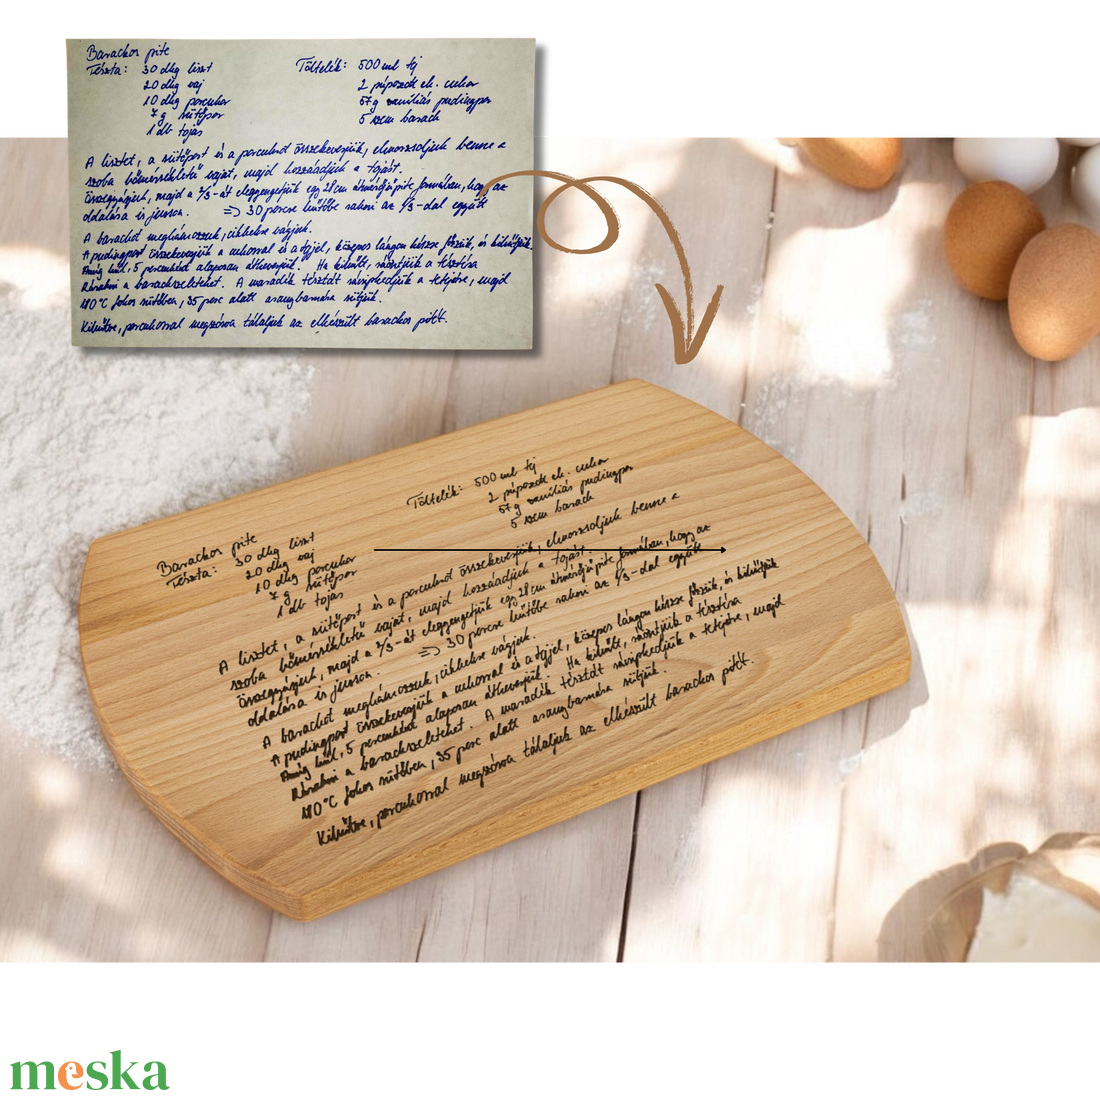 Barackos pite
Tészta: 30 dkg liszt
20 dkg vaj
10 dkg porcukor
7 g sütőpor
1 db tojás
Töltelék: 500 ml tej
2 púpozott ek. cukor
57g vaníliás pudingpor
5 szem barack
A lisztet, a sütőport és a porcukrot összekeverjük, elmorzsoljuk benne a
szoba hőmérsékletű vajat, majd hozzáadjuk a tojást.
Összegyúrjuk, majd a 2/3-át elegyengetjük egy 28 cm átmérőjű pite formában, hogy az
oldalára is jusson. => 30 percre hűtőbe rakni az 1/3-dal együtt
A barackot meghámozzuk, cikkekre vágjuk.
A pudingport összekeverjük a cukorral és a tejjel, közepes lángon készre főzzük, és kihűtjük.
Amíg hűl, 5 percenként alaposan átkeverjük. Ha kihűlt, ráöntjük a tésztára
Rárakni a barackszeleteket. A maradék tésztát rácsipkedjük a tetejére, majd
180°C fokos sütőben, 35 perc alatt aranybarnára sütjük.
Kihűtve, porcukorral megszórva tálaljuk az elkészült barackos pitét.
Barackos pite
Tészta: 30 dkg liszt
20 dkg vaj
10 dkg porcukor
7 g sütőpor
1 db tojás
Töltelék: 500 ml tej
2 púpozott ek. cukor
57g vaníliás pudingpor
5 szem barack
A lisztet, a sütőport és a porcukrot összekeverjük, elmorzsoljuk benne a
szoba hőmérsékletű vajat, majd hozzáadjuk a tojást.
Összegyúrjuk, majd a 2/3-át elegyengetjük egy 28 cm átmérőjű pite formában, hogy az
oldalára is jusson. => 30 percre hűtőbe rakni az 1/3-dal együtt
A barackot meghámozzuk, cikkekre vágjuk.
A pudingport összekeverjük a cukorral és a tejjel, közepes lángon készre főzzük, és kihűtjük.
Amíg hűl, 5 percenként alaposan átkeverjük. Ha kihűlt, ráöntjük a tésztára
Rárakni a barackszeleteket. A maradék tésztát rácsipkedjük a tetejére, majd
180°C fokos sütőben, 35 perc alatt aranybarnára sütjük.
Kihűtve, porcukorral megszórva tálaljuk az elkészült barackos pitét.
meska